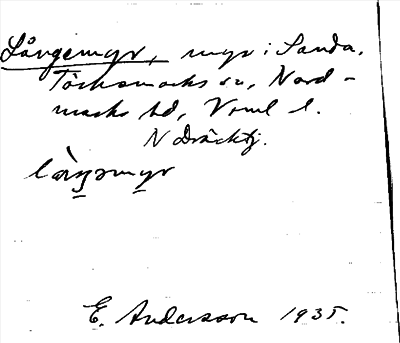 Långemyr, myr i Sanda,
Töcksmarks sn, Nord-
marks hd, Vrml l.
N Dräcktj.
làŋəmyr
E. Andersson 1935.